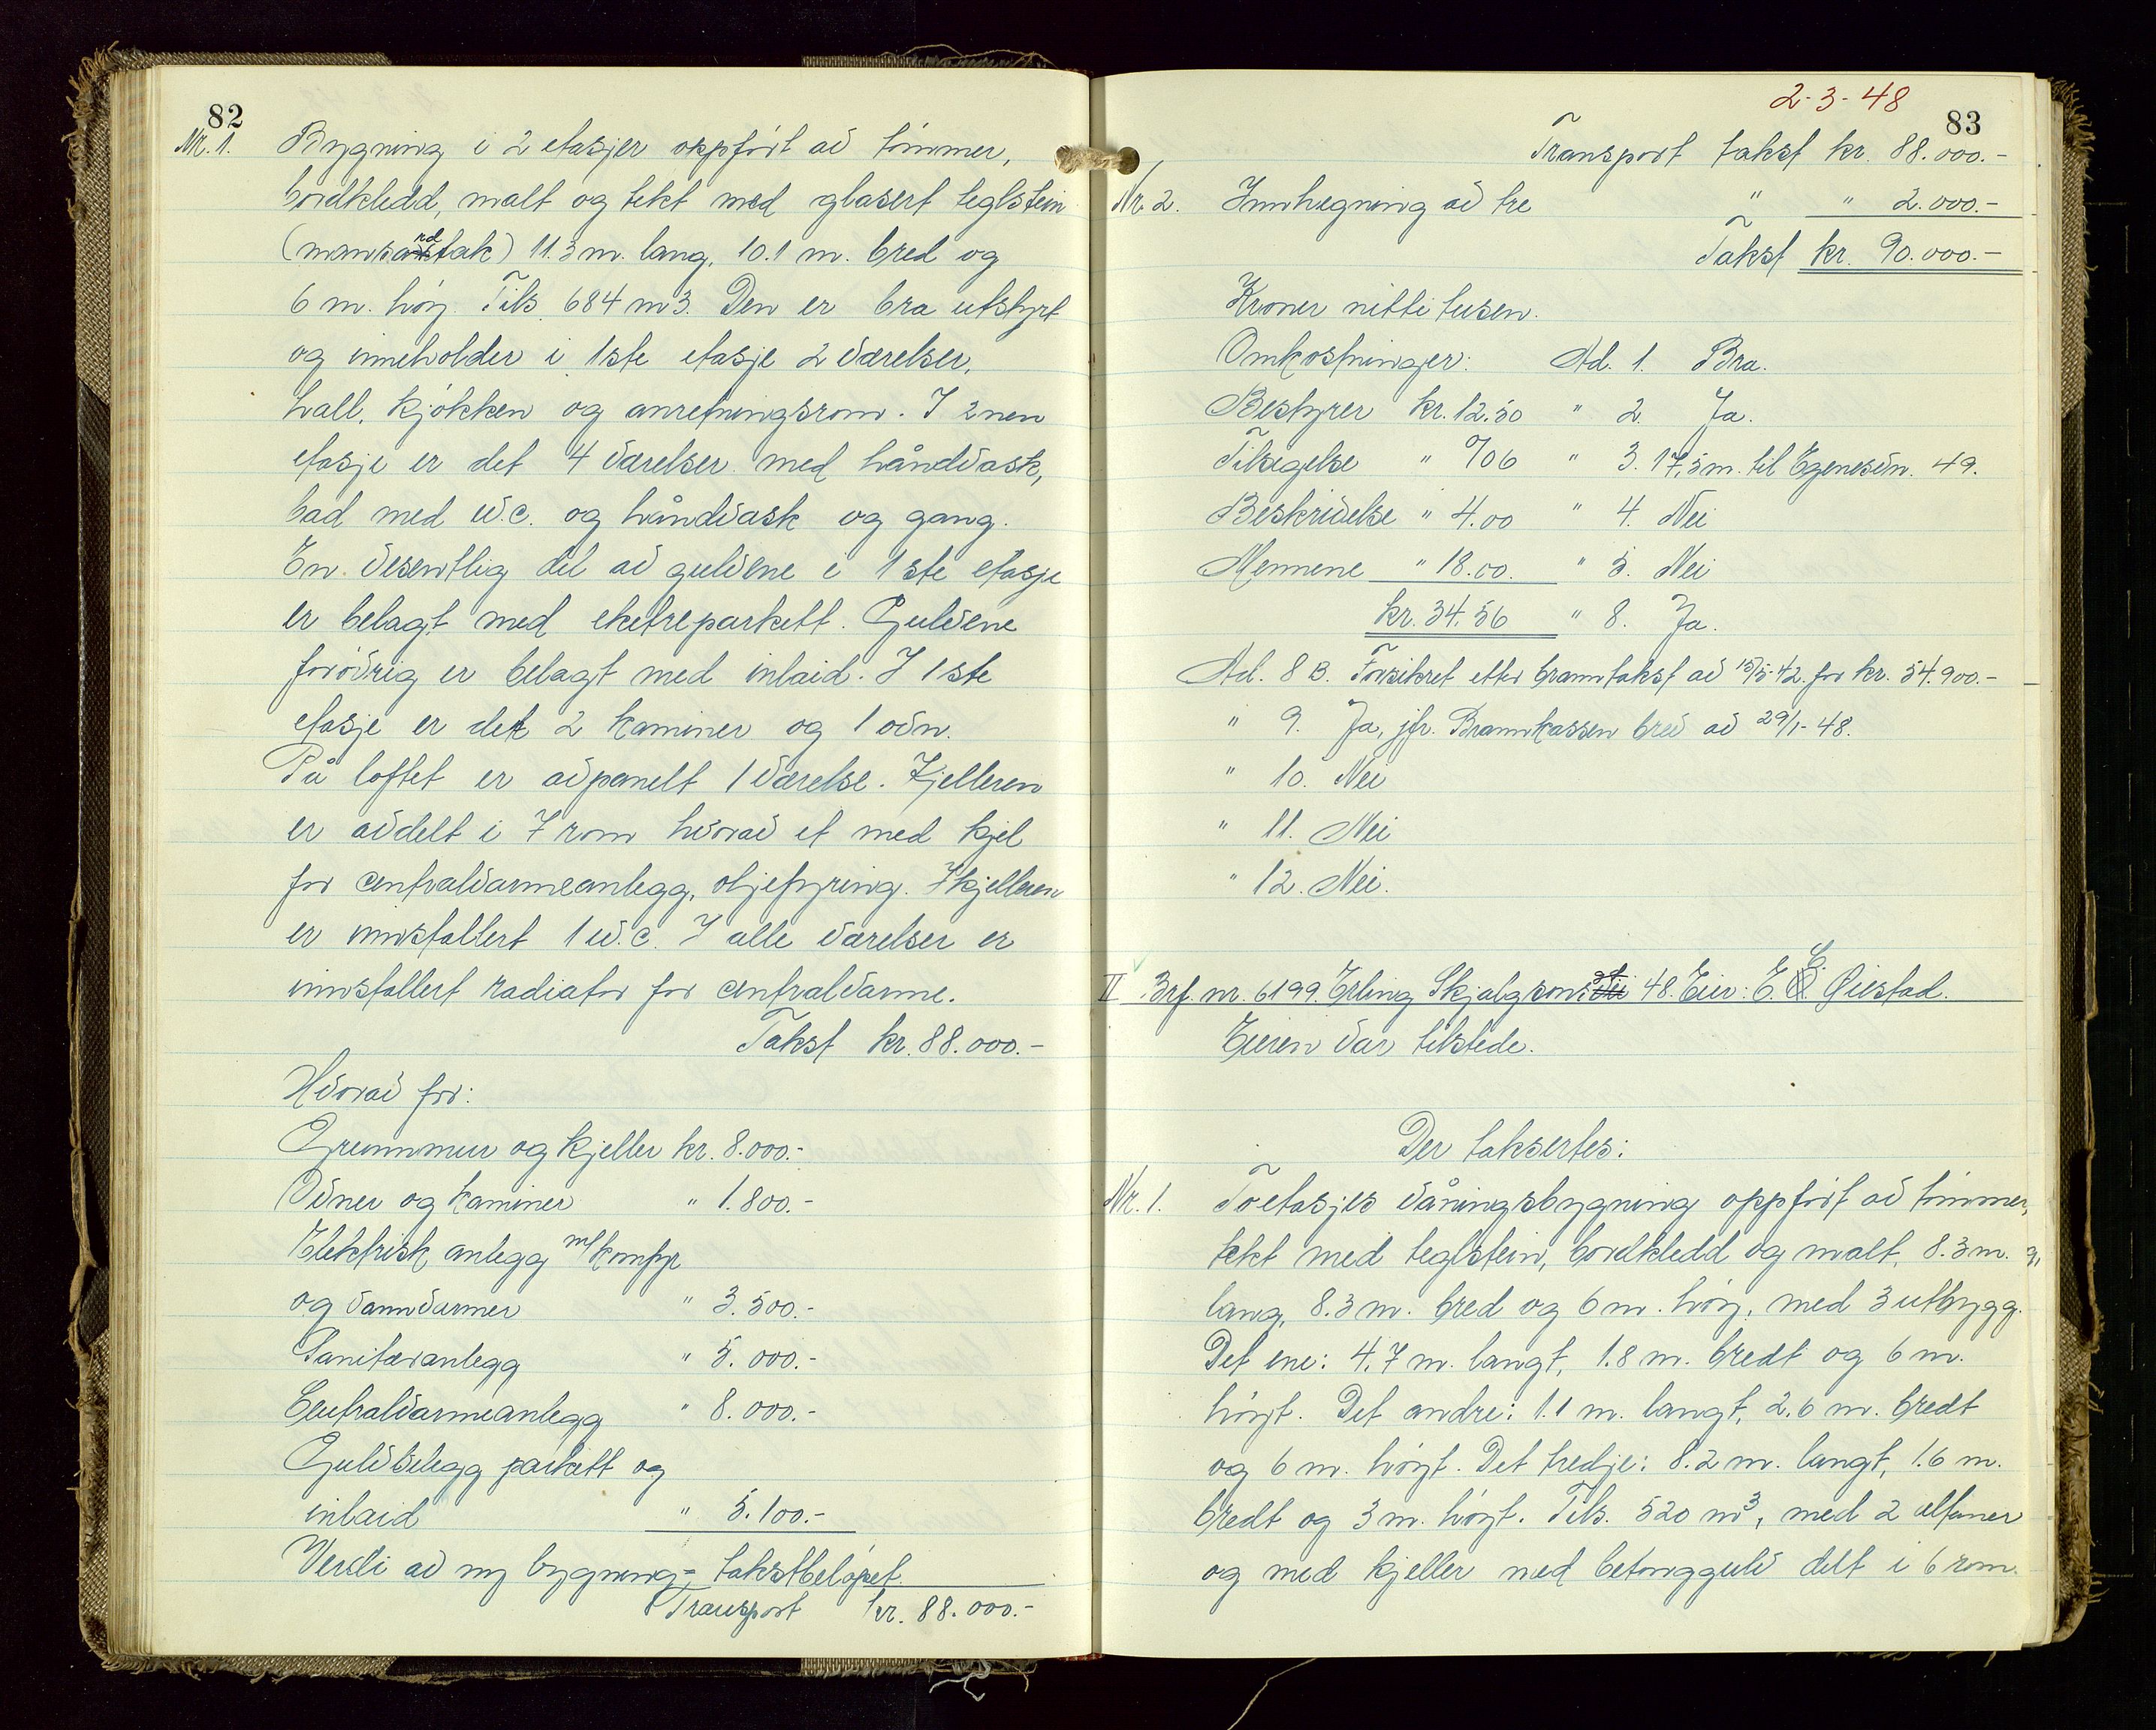 82
Nr. 1. Bygning i 2 etasjer oppført av tømmer,
bordkledd, malt og tekt med glasert teglstein
(mansardtak) 11.3 m. lang, 10.1 m. bred og
6 m. høy. Tils. 684 m3. Den er bra utstyrt
og inneholder i 1ste etasje 2 værelser,
hall, kjøkken og anretningsrom. I 2nen
etasje er det 4 værelser med håndvask,
bad med w.c. og håndvask og gang.
En vesentlig del av gulvene i 1ste etasje
er belagt med eketreparkett. Gulvene
forøvrig er belagt med inlaid. I 1ste
etasje er det 2 kaminer og 1 ovn.
På loftet er avpanelt 1 værelse. Kjelleren
er avdelt i 7 rom hvorav et med kjel
for centralvarmeanlegg, oljefyring. I kjelleren
er innstallert 1 w.c. I alle værelser er
innstallert radiator for centralvarme.
Takst kr. 88.000.-
Hvorav for:
Grunnmur og kjeller kr. 8.000.-
Ovner og kaminer " 1.800.-
Elektrisk anlegg m/komfyr
og vannvarmer " 3.500.-
Sanitæranlegg " 5.000.-
Centralvarmeanlegg " 8.000.-
Gulvbelegg parkett og
inlaid " 5.100.-
Verdi av ny bygning = takstbeløpet.
Transport kr. 88.000.-
2-3-48
83
Transport takst kr. 88.000.-
Nr. 2. Innhegning av tre " " 2.000.-
Takst kr. 90.000.-
Kroner nitti tusen.
Omkostninger: Ad. 1. Bra.
Bestyrer kr. 12.50 " 2. Ja.
Tilsigelse " 0/06 " 3. 17,5 m. til Egenesvn. 49.
Beskrivelse " 4.00 " 4. Nei
Mennene " 18.00. " 5. Nei
kr. 34.56 " 8. Ja.
Ad. 8 B. Forsikret etter branntakst av 15/5-42. for kr. 54.900.-
" 9. Ja, jfr. Brannkassen brev av 29/1-48.
" 10. Nei
" 11. Nei
" 12. Nei.
II Brf. nr. 6199 Erling Skjalgsons gt 48. Eier: E. C. Øiestad.
Eieren var tilstede.
Der taksertes:
Nr. 1. Toetasjes våningsbygning oppført av tømmer,
tekt med teglstein, bordkledd og malt, 8.3 m.
lang, 8.3 m. bred og 6 m. høy, med 3 utbygg.
Det ene: 4.7 m. langt, 1.8 m. bredt og 6 m.
høyt. Det andre: 1.1 m. langt, 2.6 m. bredt
og 6 m. høyt. Det tredje: 8.2 m. langt, 1.6 m.
bredt og 3 m. høyt. Tils. 520 m3, med 2 altaner
og med kjeller med betonggulv delt i 6 rom.